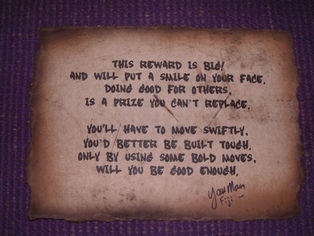 THIS REWARD IS BIG!
AND WILL PUT A SMILE ON YOUR FACE.
DOING GOOD FOR OTHERS,
IS A PRIZE YOU CAN'T REPLACE.
YOU'LL HAVE TO MOVE SWIFTLY.
YOU'D BETTER BE BUILT TOUGH.
ONLY BY USING SOME BOLD MOVES,
WILL YOU BE GOOD ENOUGH.
Yau Man
Fiji